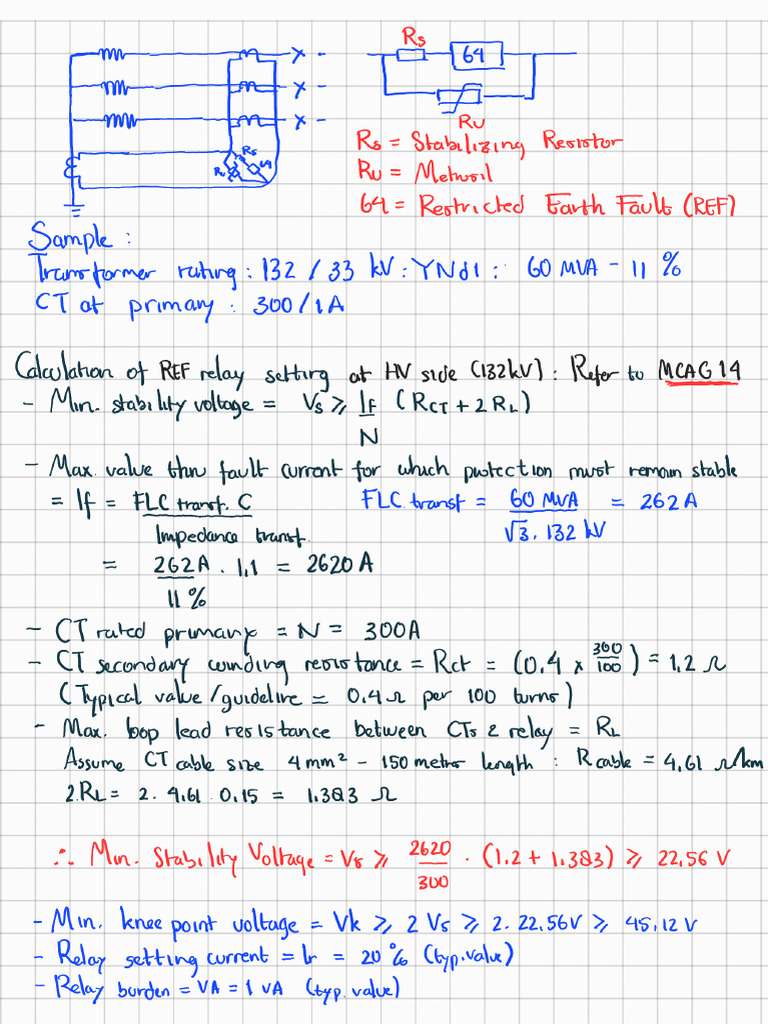 Rs
64
Ru
Rs
Ru
64
Rs = Stabilizing Resistor
Ru = Metrosil
64 = Restricted Earth Fault (REF)
Sample :
Transformer rating : 132 / 33 kV : YNd1 : 60 MVA - 11 %
CT at primary : 300 / 1A
Calculation of REF relay setting at HV side (132kV) : Refer to MCAG 14
- Min. stability voltage = Vs ≥ IF/N (RCT + 2 RL)
- Max. value thru fault current for which protection must remain stable
= If = FLC transf. C / Impedance transf.
FLC transf = 60 MVA / √3 . 132 kV = 262 A
= 262 A / 11 % . 1,1 = 2620 A
- CT rated primary = N = 300A
- CT secondary winding resistance = Rct = (0.4 x 300/100) = 1.2 Ω
(Typical value / guideline = 0.4 Ω per 100 turns)
- Max. loop lead resistance between CTs & relay = RL
Assume CT cable size 4 mm² - 150 meter length : R cable = 4,61 Ω/km
2.RL = 2. 4.61 . 0,15 = 1.383 Ω
∴ Min. Stability Voltage = Vs ≥ 2620/300 . (1.2 + 1.383) ≥ 22,56 V
- Min. knee point voltage = Vk ≥ 2 Vs ≥ 2. 22,56V ≥ 45,12 V
- Relay setting current = Ir = 20 % (typ. value)
- Relay burden = VA = 1 VA (typ. value)